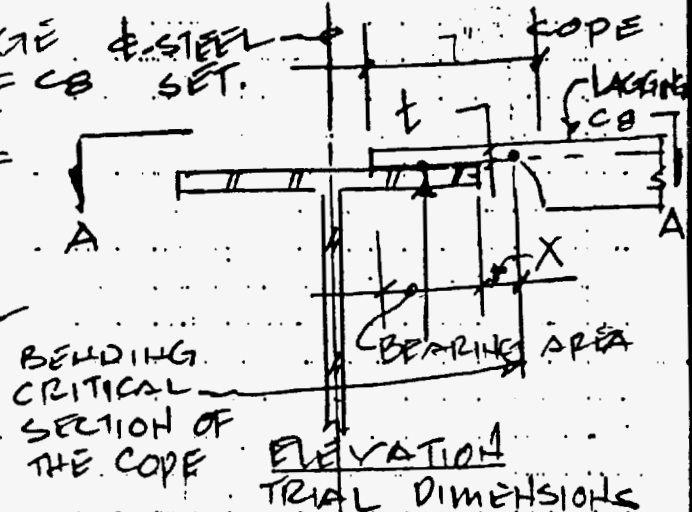 GE ⅊ STEEL 7" COPE
= C8 SET.
LAGGING
C8
t
A A
X
BEARING AREA
BENDING
CRITICAL
SECTION OF
THE COPE
ELEVATION
TRIAL DIMENSIONS